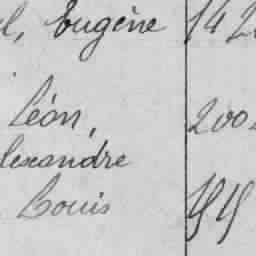 l, Eugène 142
Léon, 200
lexandre
Louis